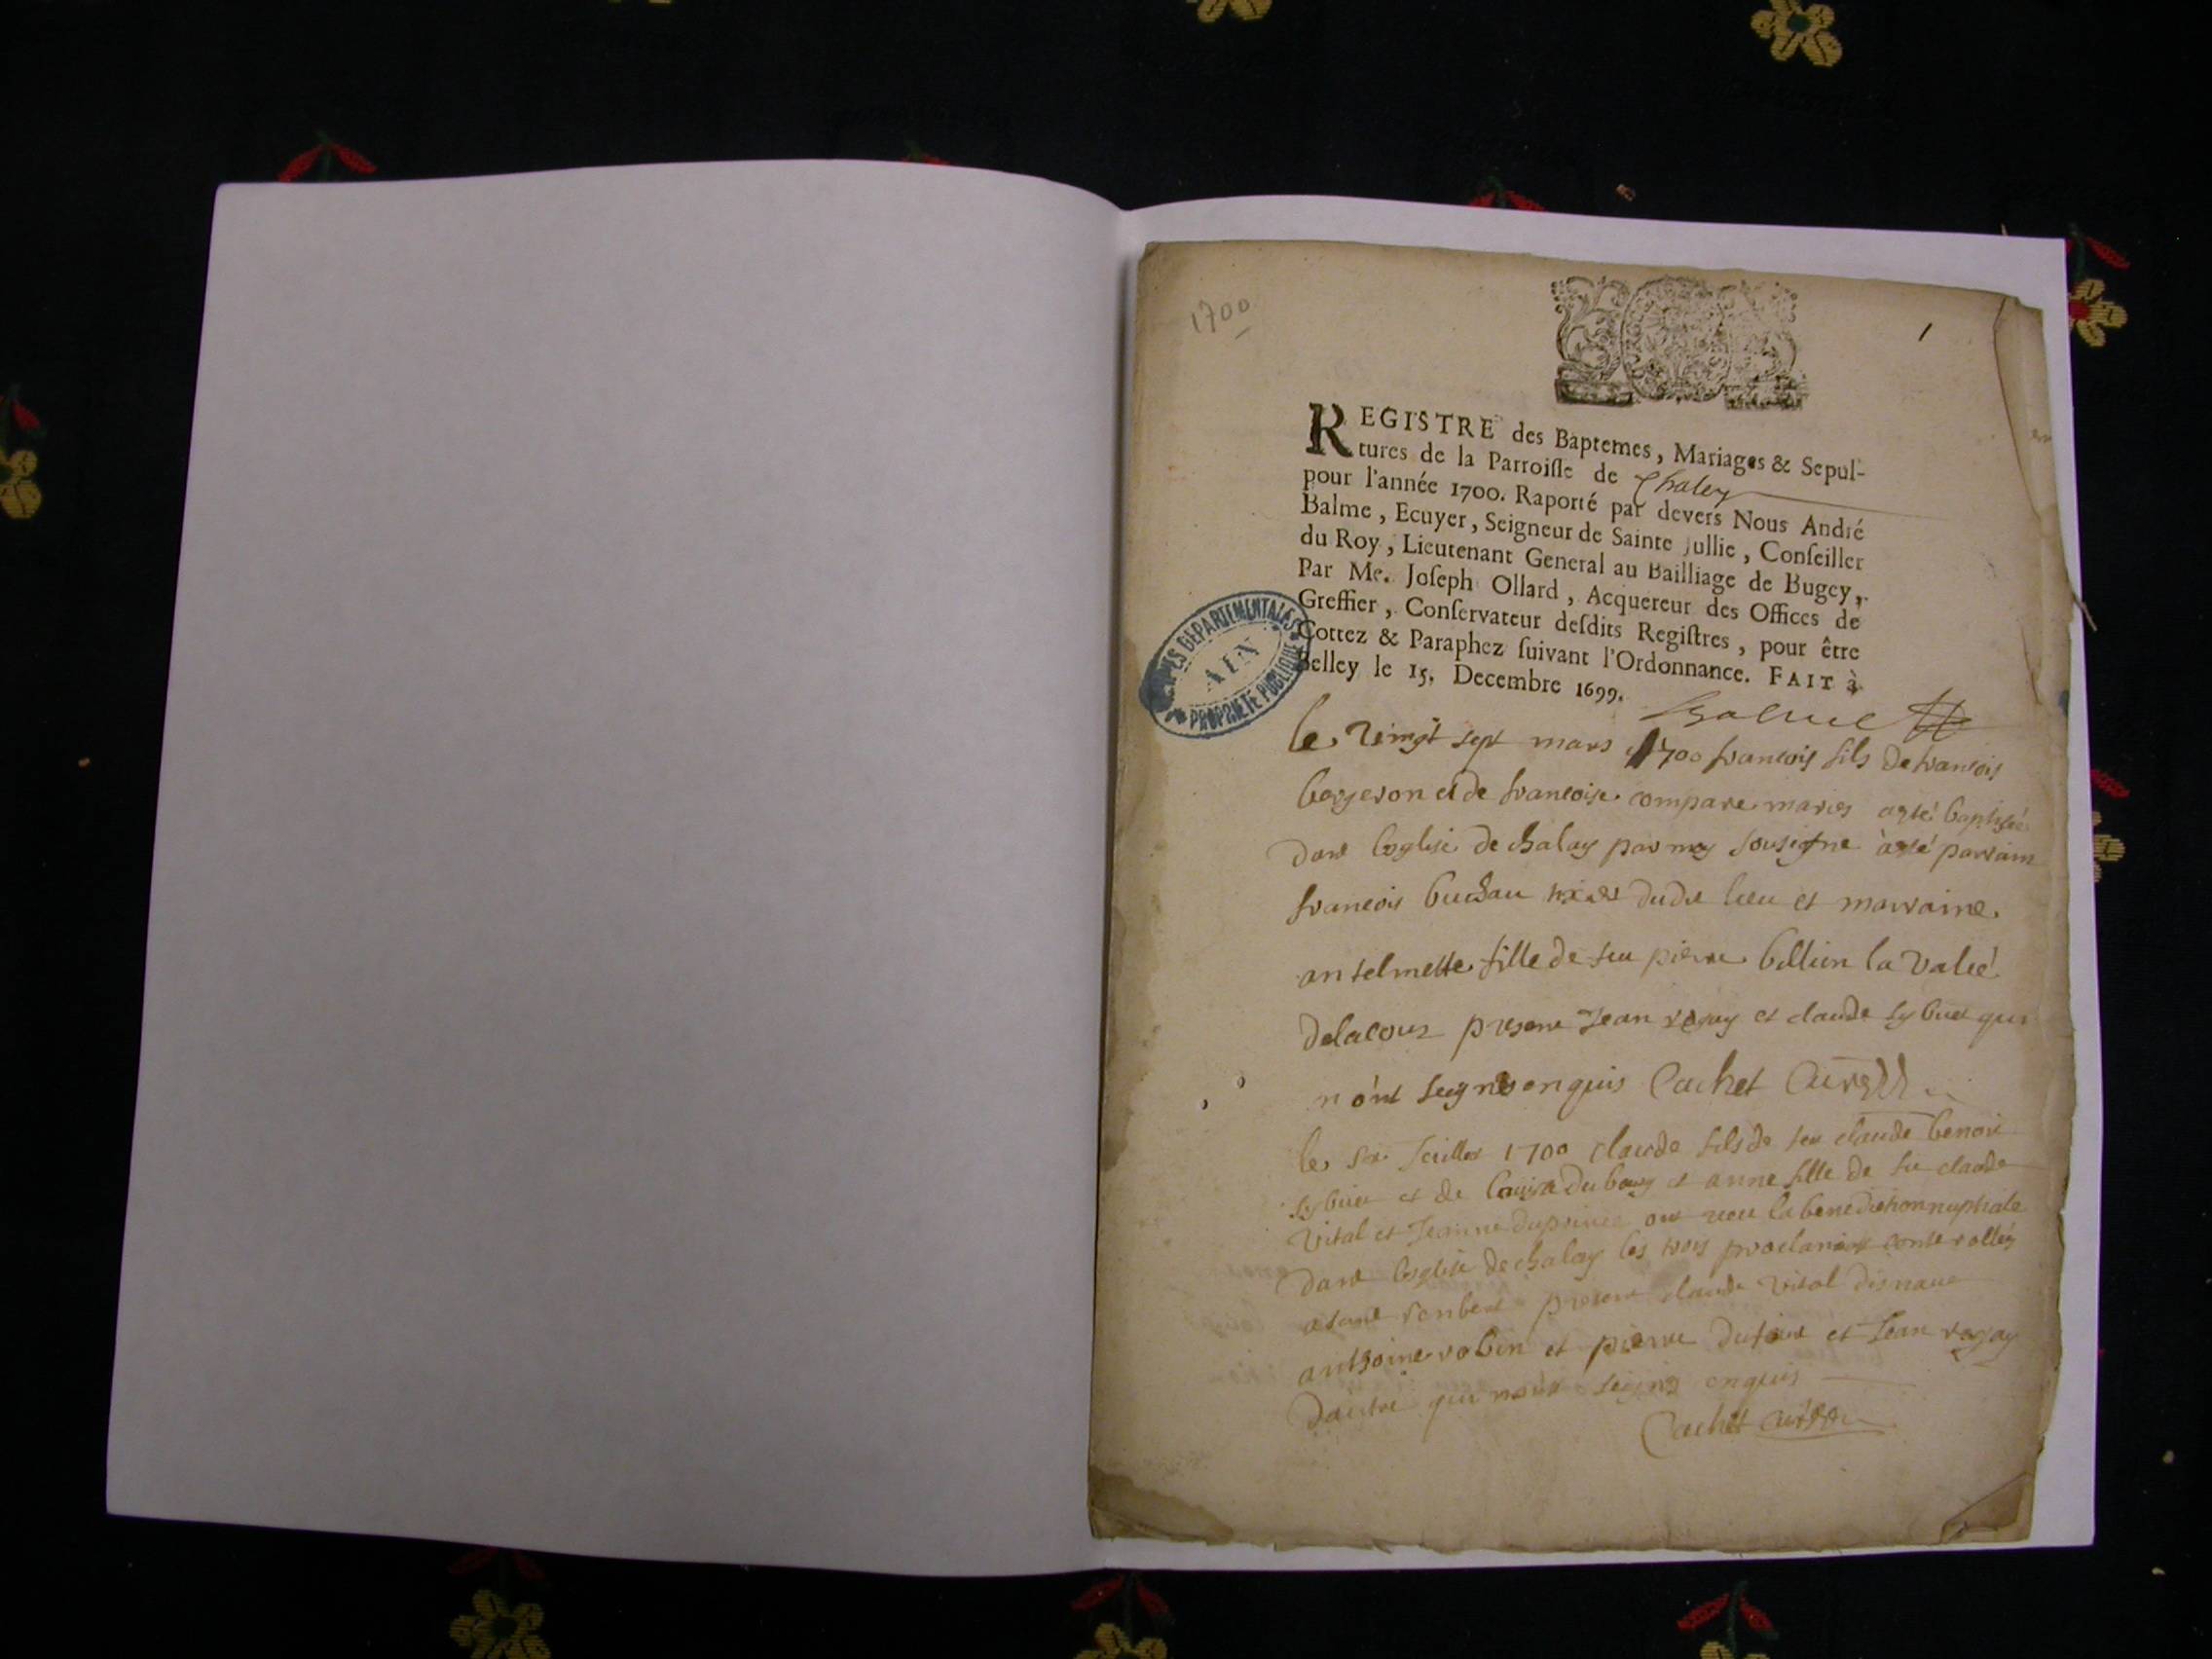 1700
1
REGISTRE des Baptemes, Mariages & Sepul-
tures de la Parroisse de Chaley
pour l'année 1700. Raporté par devers Nous André
Balme, Ecuyer, Seigneur de Sainte Jullie, Conseiller
du Roy, Lieutenant General au Bailliage de Bugey,
Par Me. Joseph Ollard, Acquereur des Offices de
Greffier, Conservateur desdits Registres, pour être
Cottez & Paraphez suivant l'Ordonnance. FAIT à
Belley le 15. Decembre 1699.
Balme
ARCHIVES DÉPARTEMENTALES
AIN
PROPRIÉTÉ PUBLIQUE
le vingt sept mars 1700 francois fils de francois
bergeron et de francoise compare maries a esté baptisé
dans leglise de chaley par moy sousigne a esté parrain
francois buchau dudit lieu et marraine
antelmette fille de feu pierre billion la valeé
delacour present Jean et claude sybuet qui
n'ont enquis Cachet Curé
le six Juillet 1700 claude fils de feu claude benoit
sybuet et de louise dubourg et anne fille de feu claude
vital et Jeanne ont receu la benediction nuptiale
dans leglise de chaley les trois controllés
a saint rembert present claude vital
anthoine robin et pierre et Jean
qui enquis
Cachet Curé